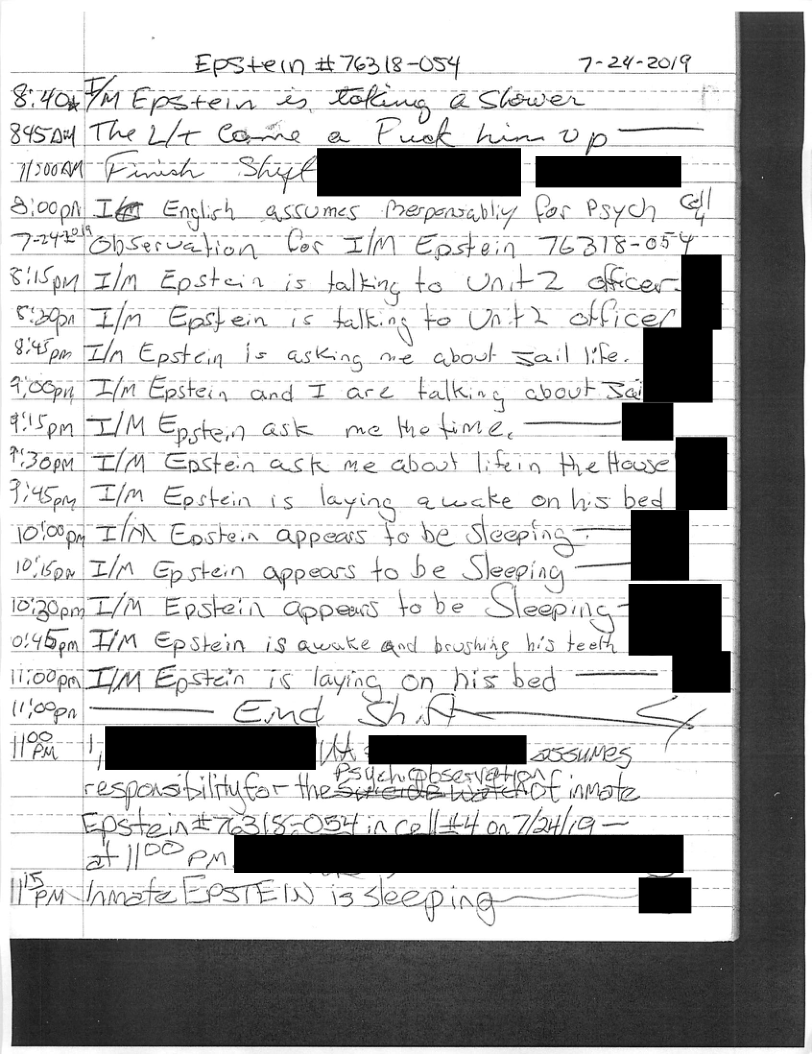 Epstein #76318-054 7-24-2019
8:40A I/M Epstein is taking a shower
845AM The L/t Came a Puck him up
11:00AM Finish Shift
8:00pm I English assumes responsabliy for Psych Cell 4
7-24-2019 Observation for I/M Epstein 76318-054
8:15pm I/m Epstein is talking to Unit 2 officer
8:30pm I/m Epstein is talking to Unit 2 officer
8:45pm I/m Epstein is asking me about Jail life.
9:00pm I/m Epstein and I are talking about Jai
9:15pm I/M Epstein ask me the time.
9:30pm I/M Epstein ask me about life in the House
9:45pm I/m Epstein is laying awake on his bed
10:00pm I/M Epstein appears to be Sleeping
10:15pm I/M Epstein appears to be Sleeping
10:30pm I/M Epstein appears to be Sleeping
0:45pm I/M Epstein is awake and brushing his teeth
11:00pm I/M Epstein is laying on his bed
11:00pm End Shift
11 00 PM I, assumes
psych observation
responsibility for the suicide watch of inmate
Epstein #76318-054 in cell #4 on 7/24/19
at 11 00 PM.
11 15 PM Inmate EPSTEIN is sleeping